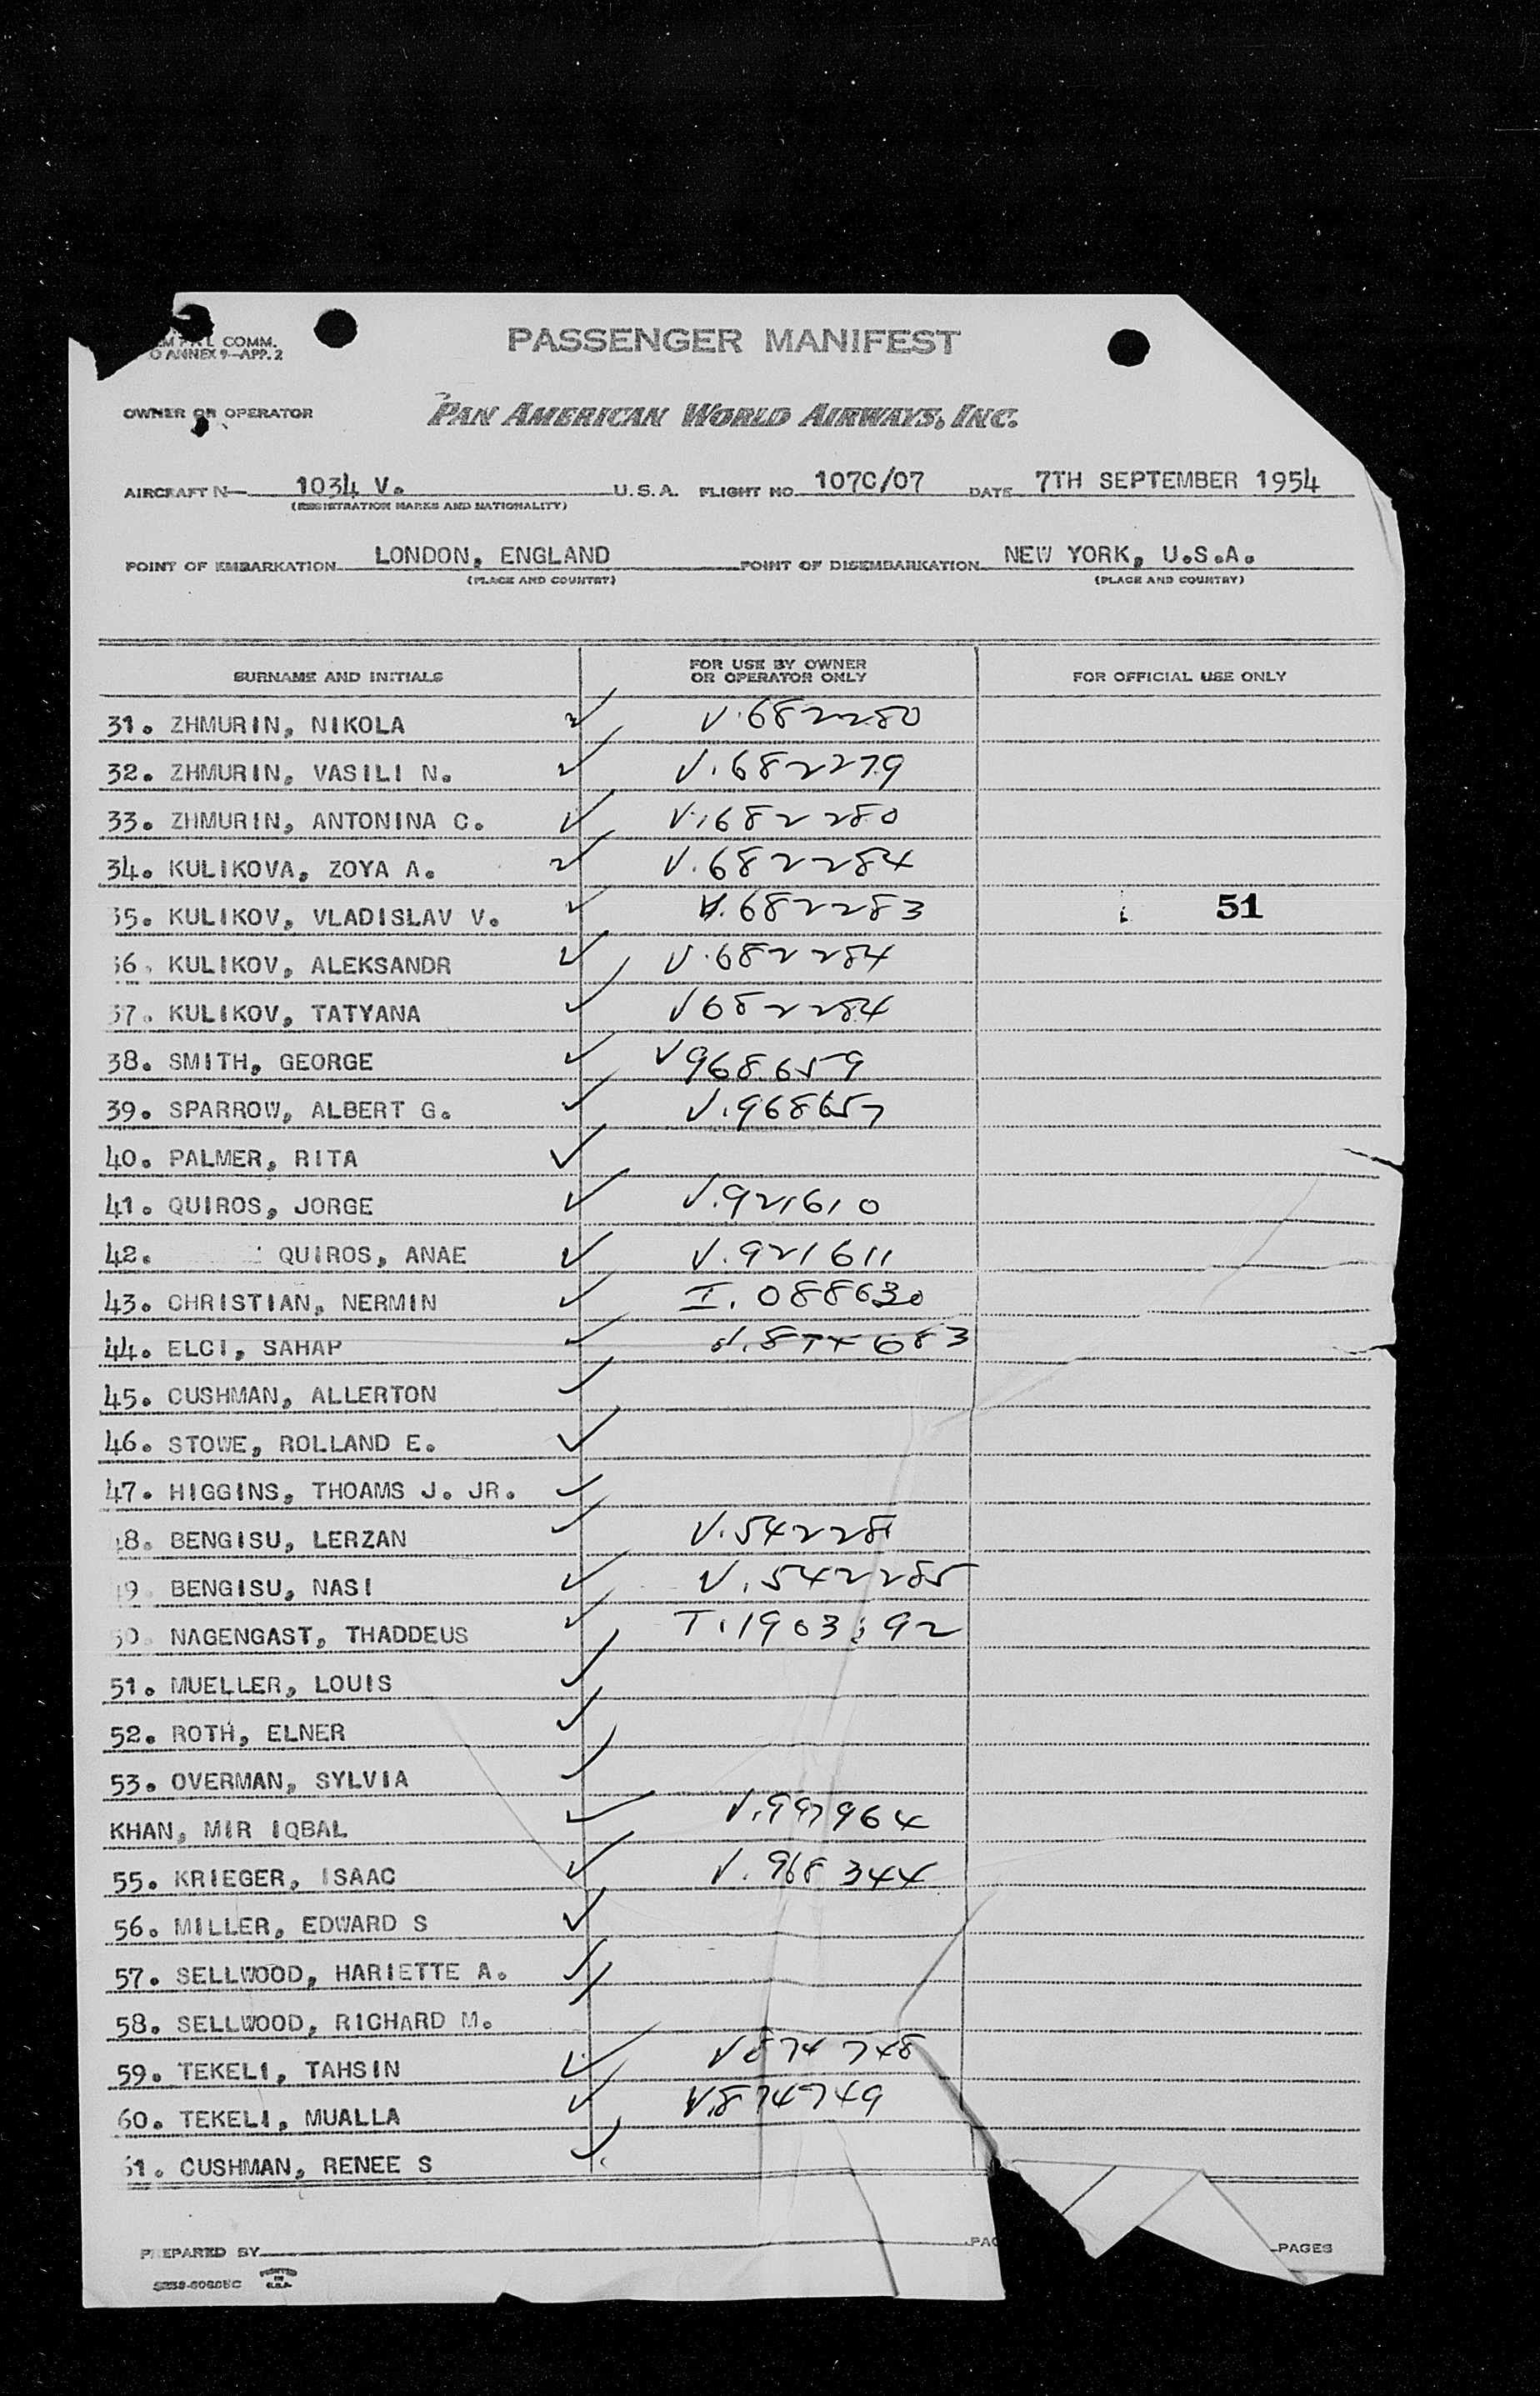 COMM.
O ANNEX 9—APP. 2
PASSENGER MANIFEST
OWNER OR OPERATOR
PAN AMERICAN WORLD AIRWAYS, INC.
AIRCRAFT N— 1034 V. U.S.A. FLIGHT NO. 107C/07 DATE 7TH SEPTEMBER 1954
(REGISTRATION MARKS AND NATIONALITY)
POINT OF EMBARKATION LONDON, ENGLAND POINT OF DISEMBARKATION NEW YORK, U.S.A.
(PLACE AND COUNTRY) (PLACE AND COUNTRY)
SURNAME AND INITIALS FOR USE BY OWNER OR OPERATOR ONLY FOR OFFICIAL USE ONLY
31. ZHMURIN, NIKOLA V.682280
32. ZHMURIN, VASILI N. V.682279
33. ZHMURIN, ANTONINA C. V.682280
34. KULIKOVA, ZOYA A. V.682284
35. KULIKOV, VLADISLAV V. V.682283 51
36. KULIKOV, ALEKSANDR V.682284
37. KULIKOV, TATYANA V682284
38. SMITH, GEORGE V968659
39. SPARROW, ALBERT G. V.968657
40. PALMER, RITA
41. QUIROS, JORGE V.921610
42. QUIROS, ANAE V.921611
43. CHRISTIAN, NERMIN I.088630
44. ELCI, SAHAP V.874683
45. CUSHMAN, ALLERTON
46. STOWE, ROLLAND E.
47. HIGGINS, THOAMS J. JR.
48. BENGISU, LERZAN
49. BENGISU, NASI V.542285
50. NAGENGAST, THADDEUS
51. MUELLER, LOUIS
52. ROTH, ELNER
53. OVERMAN, SYLVIA
KHAN, MIR IQBAL V.997964
55. KRIEGER, ISAAC V.968344
56. MILLER, EDWARD S
57. SELLWOOD, HARIETTE A.
58. SELLWOOD, RICHARD M.
59. TEKELI, TAHSIN V874748
60. TEKELI, MUALLA V.874749
61. CUSHMAN, RENEE S
PREPARED BY PAGES
PRINTED IN U.S.A.